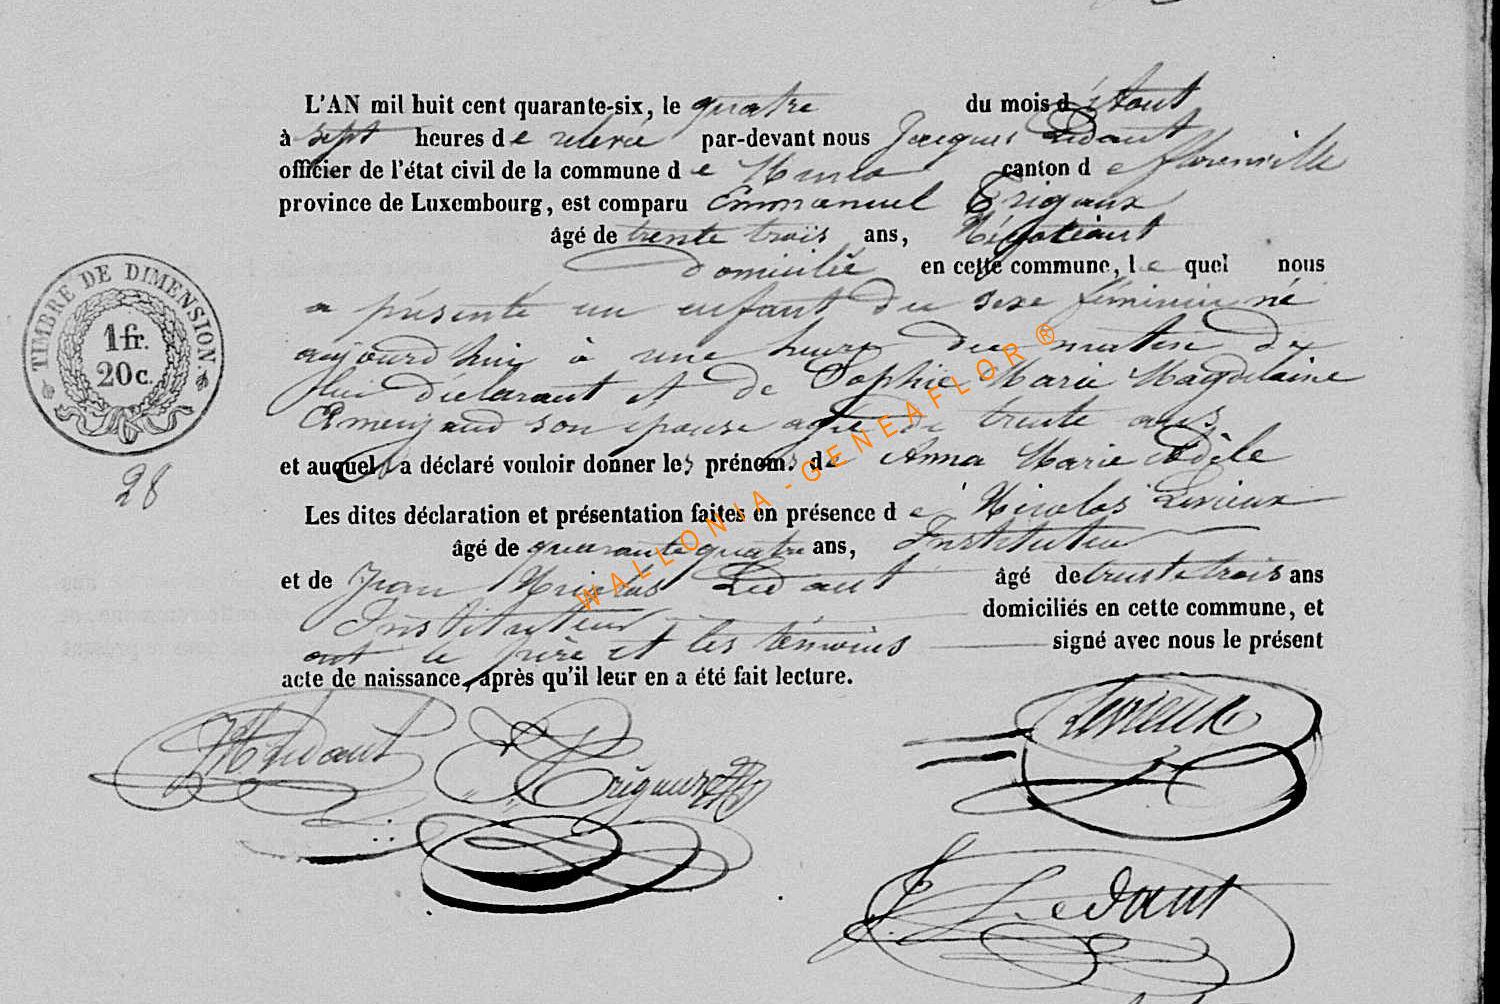 L'AN mil huit cent quarante-six, le quatre du mois d'Aout
à sept heures de relevée par-devant nous Jacques Ledant
officier de l'état civil de la commune de Muno canton de florenville
province de Luxembourg, est comparu Emmanuel Trigaux
âgé de trente trois ans, Négotiant
domicilié en cette commune, lequel nous
a présenté un enfant du sexe féminin né
aujourd'hui à une heure du matin de
lui déclarant et de Sophie Marie Magdelaine
son épouse agée de trente ans
et auquel a déclaré vouloir donner les prénoms de Anna Marie Adèle
Les dites déclaration et présentation faites en présence de Nicolas Lerieux
âgé de quarante quatre ans, Instituteur
et de Jean Nicolas Ledant âgé de trente trois ans
Instituteur domiciliés en cette commune, et
ont le père et les témoins signé avec nous le présent
acte de naissance, après qu'il leur en a été fait lecture.
TIMBRE DE DIMENSION.
1 fr.
20 c.
28
WALLONIA-GENEAFLOR ®
Ledant
Trigaux
Lerieux
J. Ledant